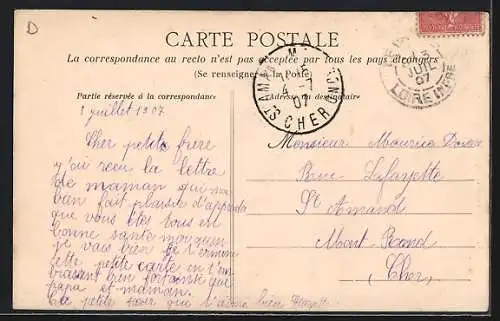 D
CARTE POSTALE
La correspondance au recto n'est pas acceptée par tous les pays étrangers
(Se renseigner à la Poste)
Partie réservée à la correspondance
Adresse du destinataire
1 juillet 1907
Cher petite frere
y'ai recu la lettre
de maman qui ma
ban fait plaisir d'aprendre
que vous êtes tous en
bonne santé moi
je vais bien je termine
cette petite carte en t'em
brasant bien ainsi que
papa et maman.
La petite soeur qui t'aime bien
Monsieur Maurice
Rue Lafayette
St Amand
Mont Rond
(Cher)
ST AMAND MONTROND
4 -7
07
CHER
13
JUIL
07
INDRE ET LOIRE